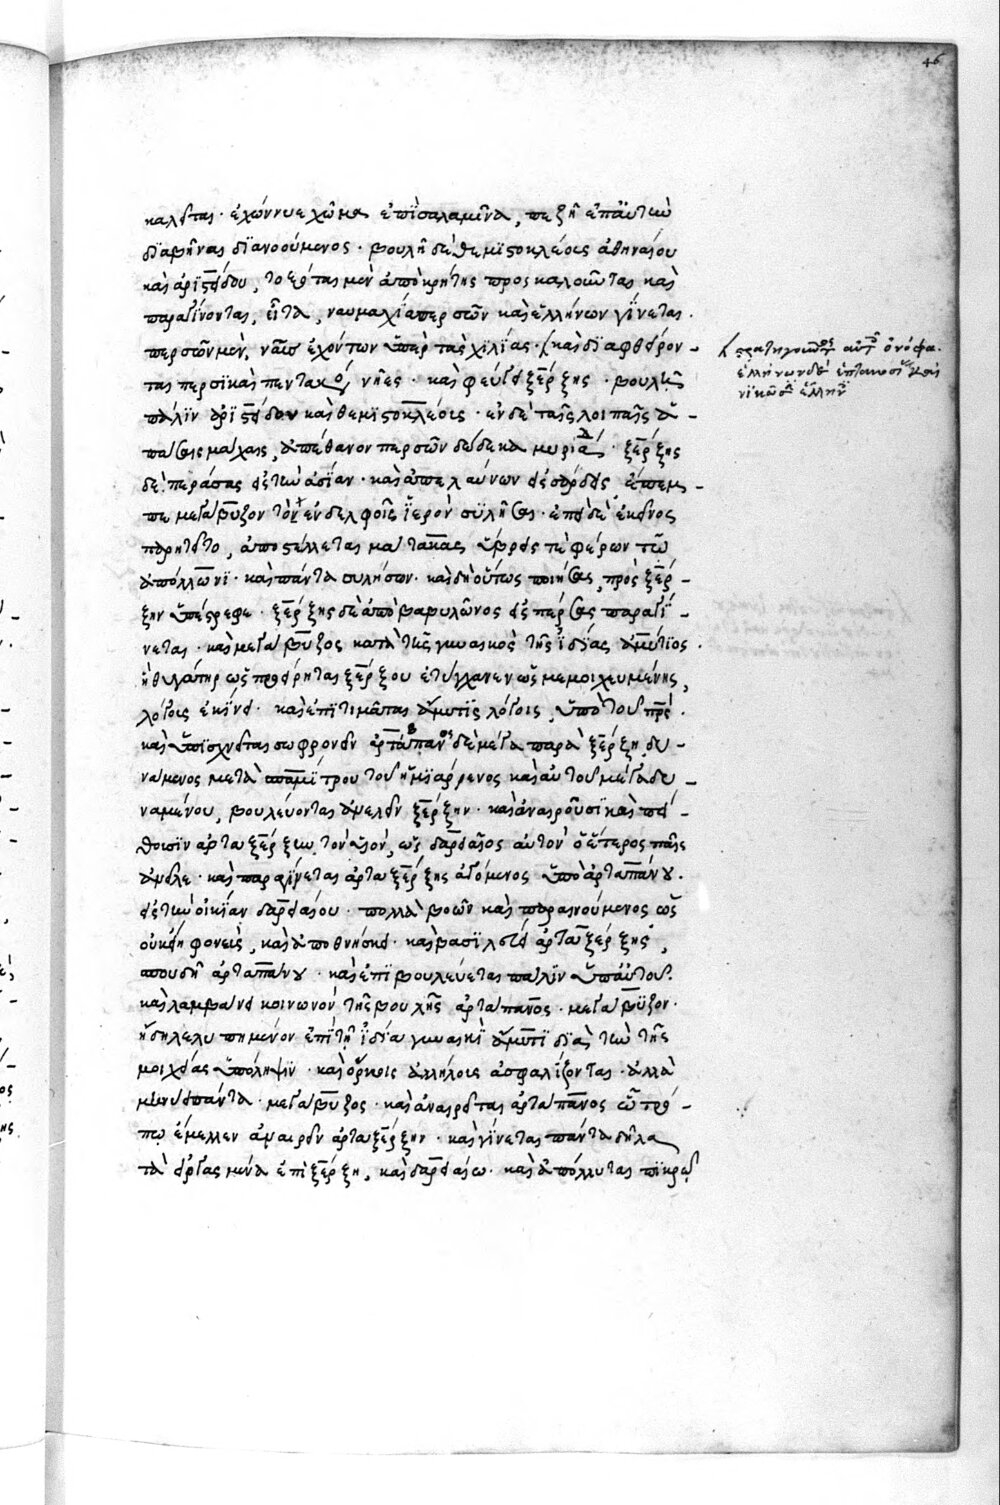 46
καλεῖται· ἐχώννυε χῶμα ἐπὶ σαλαμῖνα, πεζῆ ἐπ' αὐτὴν
διαβῆναι διανοούμενος· βουλῆ δὲ θεμιστοκλέους ἀθηναίου
καὶ ἀριστείδου, τοξόται μὲν ἀπὸ κρήτης προσκαλοῦνται καὶ
παραγίνονται, εἶτα, ναυμαχία περσῶν καὶ ἑλλήνων γίνεται·
περσῶν μὲν, ναῦς ἐχόντων ὑπὲρ τὰς χιλίας· καὶ διαφθείρον-
ται περσικαὶ πεντακό νῆες· καὶ φεύγει ξέρξης· βουλῆ
πάλιν ἀριστείδου καὶ θεμιστοκλέους· ἐν δὲ ταῖς λοιπαῖς ἁ-
πάσαις μάχαις, ἀπέθανον περσῶν δώδεκα μυριάδ· ξέρξης
δὲ περάσας εἰς τὴν ἀσίαν· καὶ ἀπελαύνων εἰς σάρδεις ἔπεμ-
πε μεγάβυξον τὸ ἐν δελφοῖς ἱερὸν συλῆσαι· ἐπεὶ δὲ ἐκεῖνος
παρῃτεῖτο, ἀποστέλλεται ματάκας ὕβρεις τε φέρων τῶ
ἀπόλλωνι· καὶ πάντα συλήσων· καὶ δὴ οὕτως ποιήσας, πρὸς ξέρ-
ξην ὑπέστρεφε· ξέρξης δὲ ἀπὸ βαβυλῶνος εἰς πέρσας παραγί-
νεται· καὶ μεγάβυξος κατὰ τῆς γυναικὸς τῆς ἰδίας ἀμύτιος·
ἡ θυγάτηρ ὡς προείρηται ξέρξου ἐτύγχανεν ὡς μεμοιχευμένης,
λόγους ἐκίνει· καὶ ἐπιτιμᾶται ἄμυτις λόγοις, ὑπὸ τοῦ πρς·
καὶ ὑπισχνεῖται σωφρονεῖν ἀρτάπανος δὲ μέγα παρὰ ξέρξη δυ-
νάμενος μετὰ ἀσπαμίτρου τοῦ ἡμιάρρενος καὶ αὐτοῦ μέγα δυ-
ναμένου, βουλεύονται ἀνελεῖν ξέρξην· καὶ ἀναιροῦσι καὶ πεί-
θουσιν ἀρταξέρξην τὸν υἱὸν, ὡς δαρειαῖος αὐτὸν ὁ ἕτερος παῖς
ἀνεῖλε· καὶ παραγίνεται ἀρταξέρξης ἀγόμενος ὑπὸ ἀρταπάνου·
εἰς τὴν οἰκίαν δαρειαίου· πολλὰ βοῶν καὶ παραινούμενος ὡς
οὐκ εἴη φονεὺς, καὶ ἀποθνήσκει· καὶ βασιλεύει ἀρταξέρξης,
σπουδῆ ἀρταπάνου· καὶ ἐπιβουλεύεται πάλιν ὑπ' αὐτοῦ·
καὶ λαμβάνει κοινωνὸν τῆς βουλῆς ἀρτάπανος· μεγάβυξον·
ἤδη λελυπημένον ἐπὶ τῆ ἰδία γυναικὶ ἀμύτι διὰ τὴν τῆς
μοιχείας ὑπόληψιν· καὶ ὅρκοις ἀλλήλους ἀσφαλίζονται· ἀλλὰ
μηνύει πάντα· μεγάβυξος· καὶ ἀναιρεῖται ἀρτάπανος ὧ τρό-
πω ἔμελλεν ἀναιρεῖν ἀρταξέρξην· καὶ γίνεται πάντα δῆλα
τὰ εἰργασμένα ἐπὶ ξέρξη, καὶ δαρειαίω· καὶ ἀπόλλυται πικρῶς
στρατηγοῦντος αὐτ ὀνόφα·
ἑλλήνων δὲ ἑπτακοσίων καὶ
νικῶσιν ἕλλην